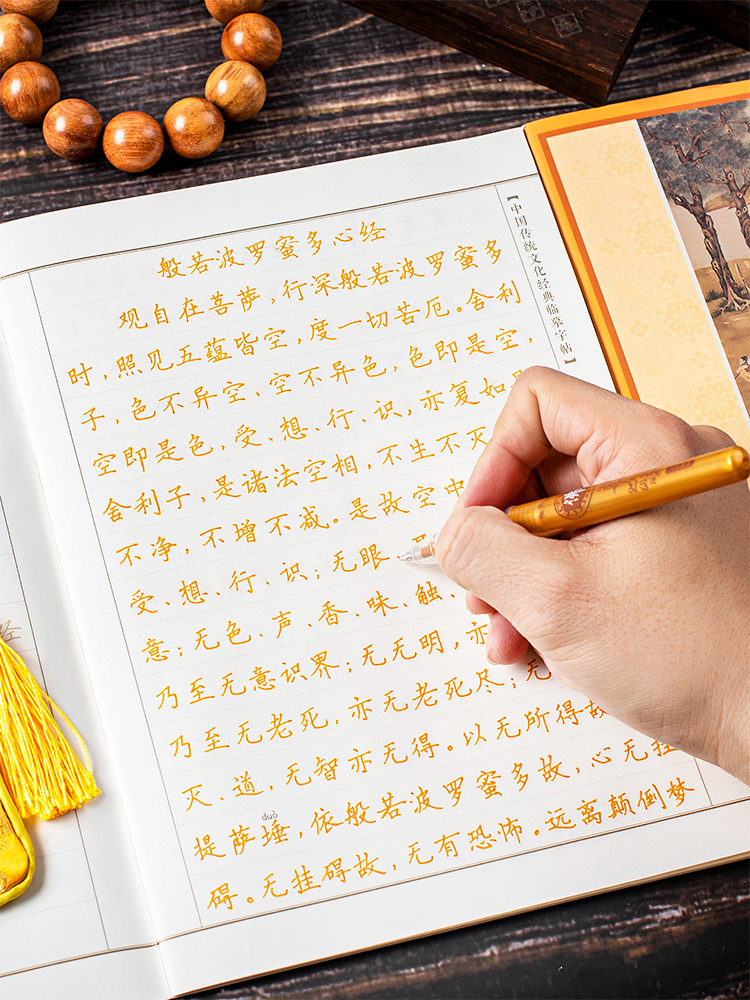 般若波罗蜜多心经
观自在菩萨，行深般若波罗蜜多
时，照见五蕴皆空，度一切苦厄。舍利
子，色不异空，空不异色，色即是空，
空即是色，受、想、行、识，亦复如是
舍利子，是诸法空相，不生不灭
不净，不增不减。是故空中
受、想、行、识；无眼、
意；无色、声、香、味、触、
乃至无意识界；无无明，亦
乃至无老死，亦无老死尽；无
灭、道，无智亦无得。以无所得故
duǒ
提萨埵，依般若波罗蜜多故，心无挂
碍。无挂碍故，无有恐怖。远离颠倒梦
【中国传统文化经典临摹字帖】
经